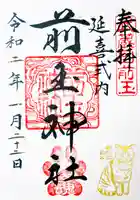 奉拝
延喜式内
前玉神社
令和二年一月二十三日